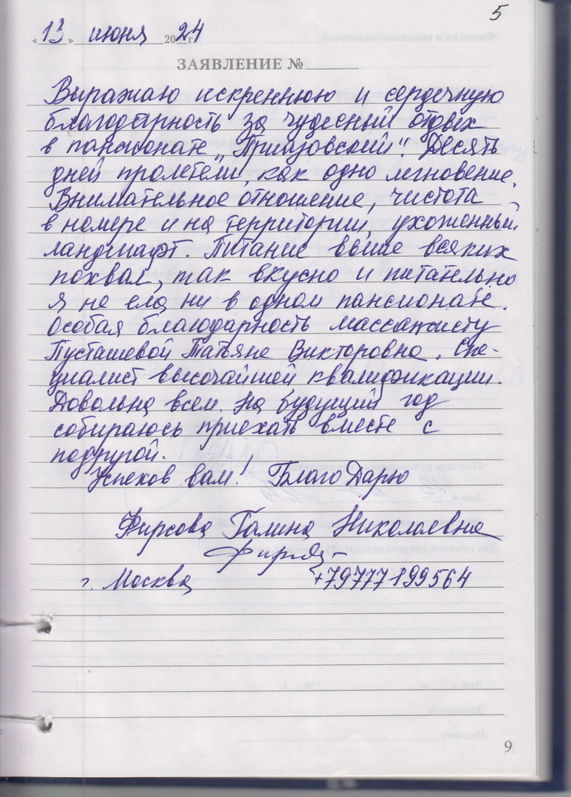 5
« 13 » июня 2024 г.
ЗАЯВЛЕНИЕ №
Выражаю искреннюю и сердечную
благодарность за чудесный отдых
в пансионате „Приазовский". Десять
дней пролетели, как одно мгновение.
Внимательное отношение, чистота
в номере и на территории, ухоженный
ландшафт. Питание выше всяких
похвал, так вкусно и питательно
я не ела ни в одном пансионате.
Особая благодарность массажисту
Пусташевой Татьяне Викторовне. Спе-
циалист высочайшей квалификации.
Довольна всем. На будущий год
собираюсь приехать вместе с
подругой.
Успехов вам! БлагоДарю
Фирсова Галина Николаевна
г. Москва +79777199564
9